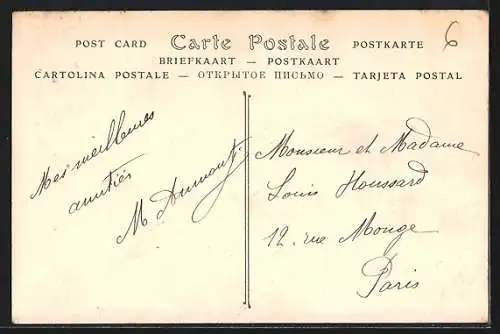 6
POST CARD Carte Postale POSTKARTE
BRIEFKAART — POSTKAART
CARTOLINA POSTALE — ОТКРЫТОЕ ПИСЬМО — TARJETA POSTAL
Mes meilleures
amitiés
M Dumont
Monsieur et Madame
Louis Houssard
12. rue Monge
Paris